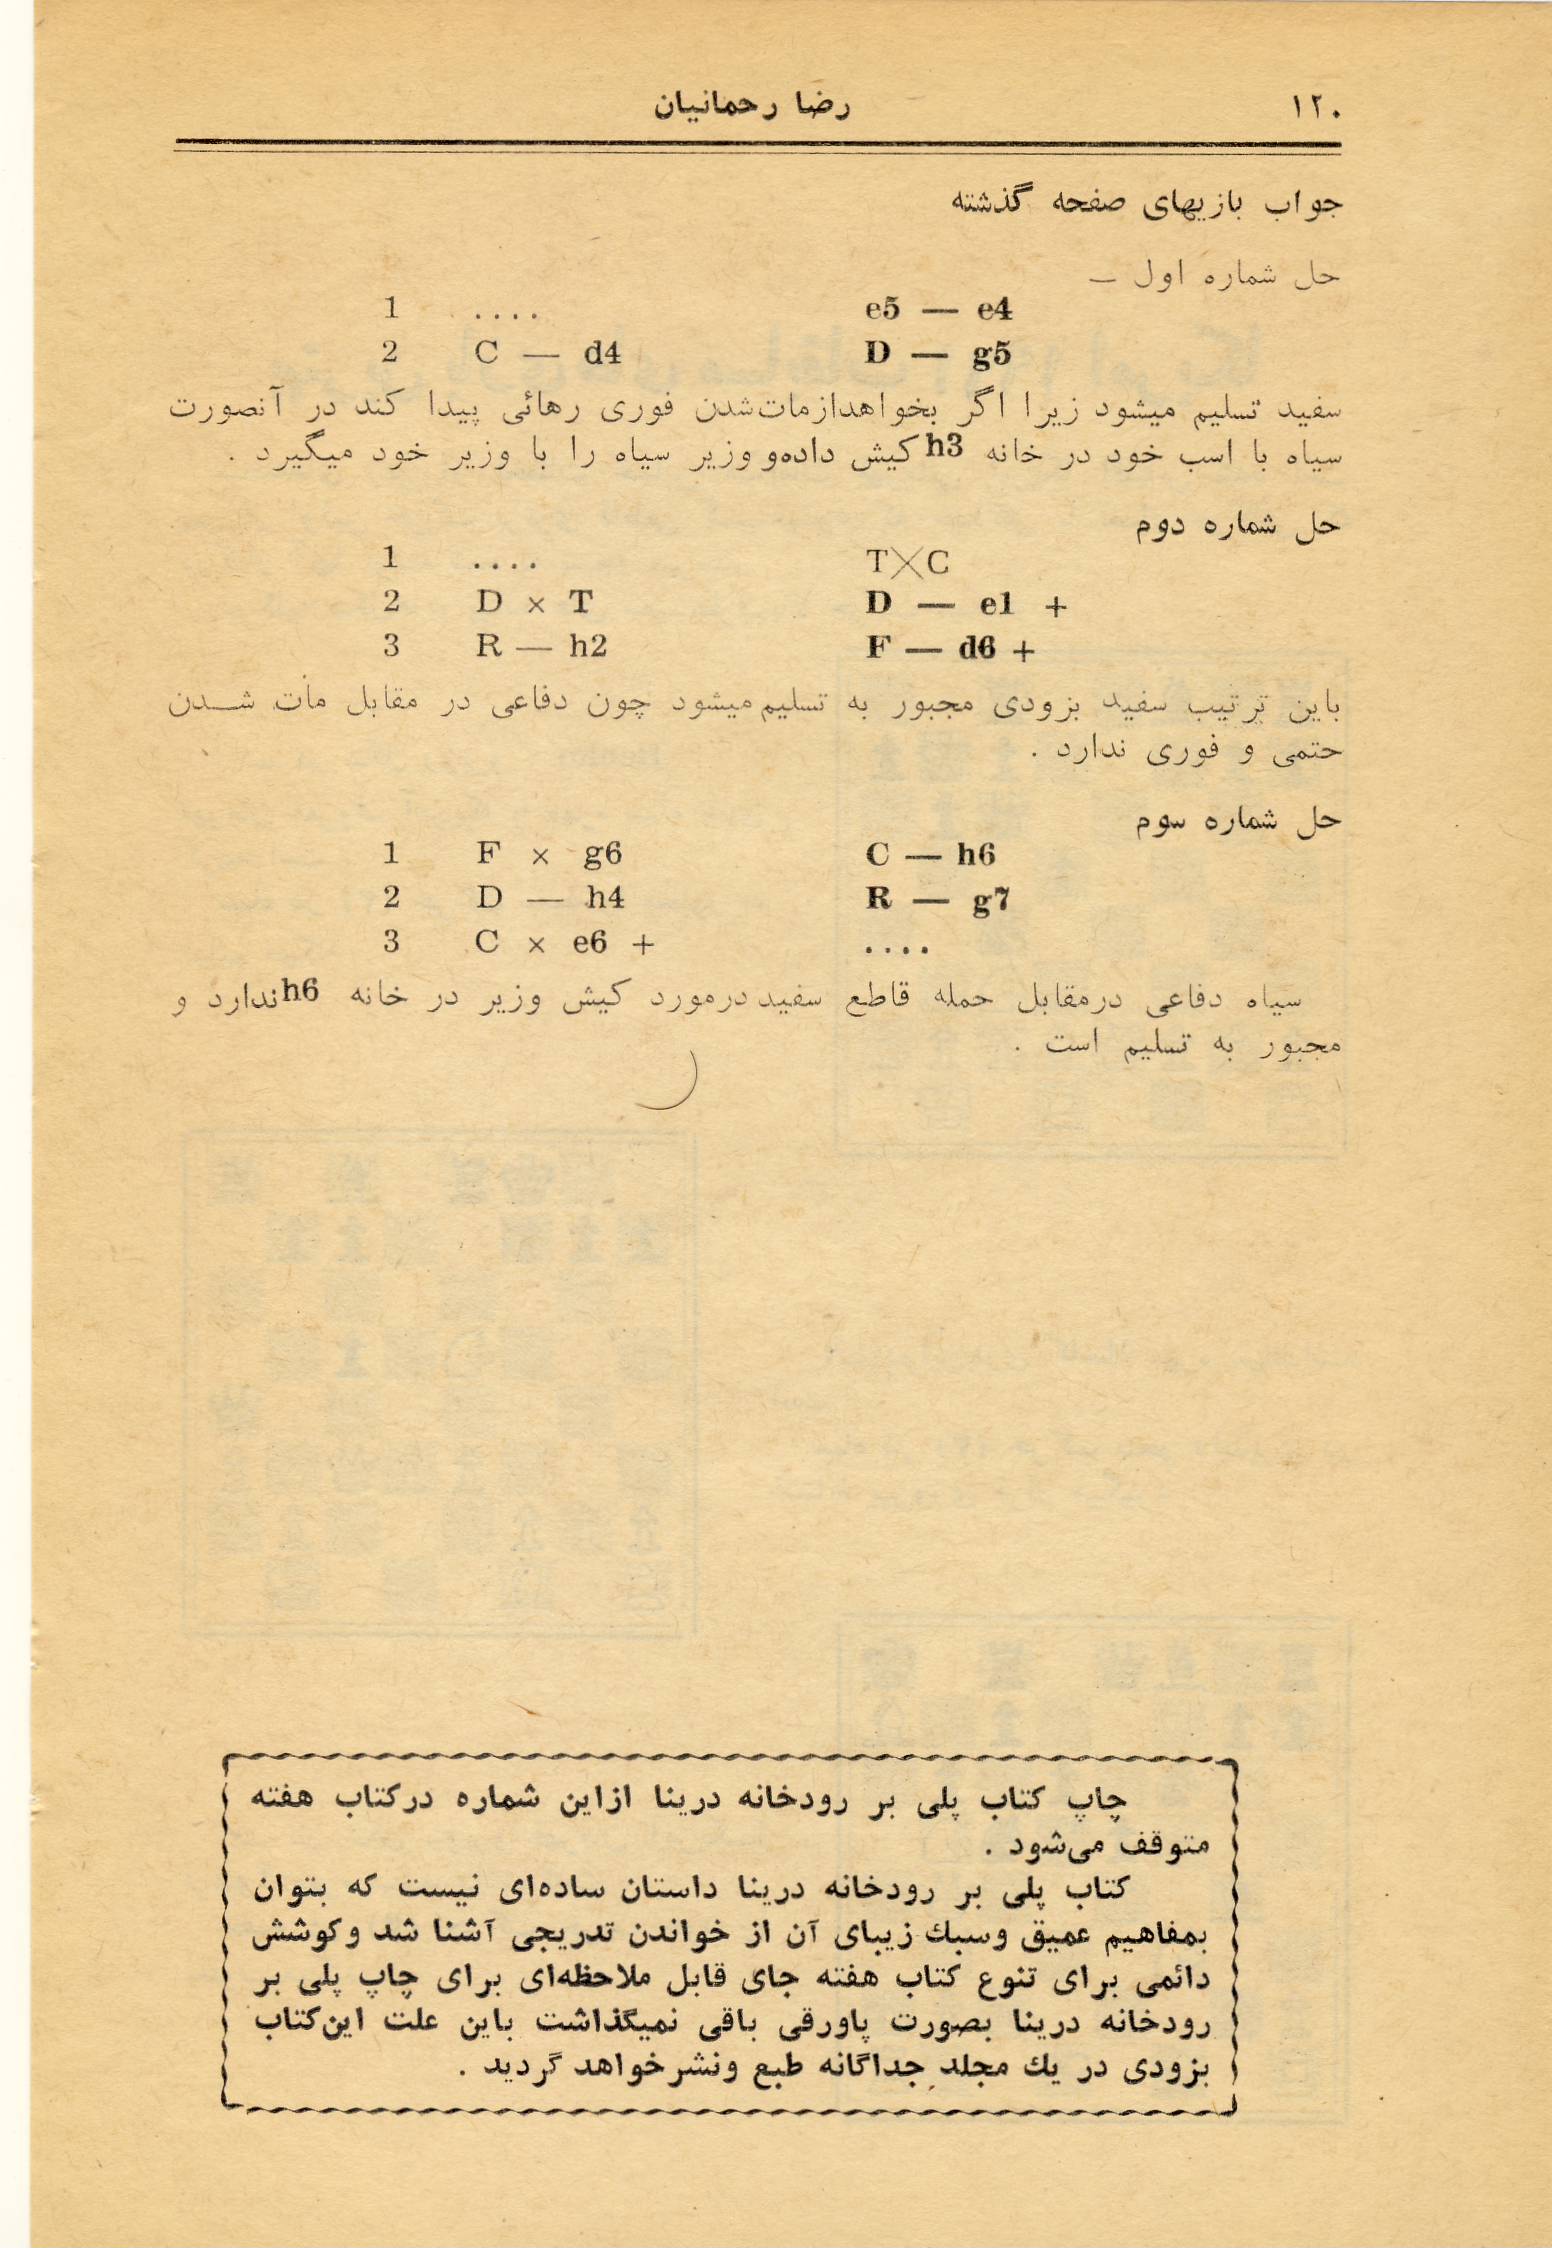 ۱۲۰
رضا رحمانیان
جواب بازیهای صفحه گذشته
حل شماره اول —
1 .... e5 — e4
2 C — d4 D — g5
سفید تسلیم میشود زیرا اگر بخواهدازمات‌شدن فوری رهائی پیدا کند در آنصورت
سیاه با اسب خود در خانه h3 کیش داده‌و وزیر سیاه را با وزیر خود میگیرد .
حل شماره دوم
1 .... T×C
2 D × T D — e1 +
3 R — h2 F — d6 +
باین ترتیب سفید بزودی مجبور به تسلیم میشود چون دفاعی در مقابل مات شدن
حتمی و فوری ندارد .
حل شماره سوم
1 F × g6 C — h6
2 D — h4 R — g7
3 C × e6 + ....
سیاه دفاعی درمقابل حمله قاطع سفید درمورد کیش وزیر در خانه h6 ندارد و
مجبور به تسلیم است .
چاپ کتاب پلی بر رودخانه درینا ازاین شماره درکتاب هفته
متوقف می‌شود .
کتاب پلی بر رودخانه درینا داستان ساده‌ای نیست که بتوان
بمفاهیم عمیق وسبك زیبای آن از خواندن تدریجی آشنا شد وکوشش
دائمی برای تنوع کتاب هفته جای قابل ملاحظه‌ای برای چاپ پلی بر
رودخانه درینا بصورت پاورقی باقی نمیگذاشت باین علت این‌کتاب
بزودی در یك مجلد جداگانه طبع ونشرخواهد گردید .